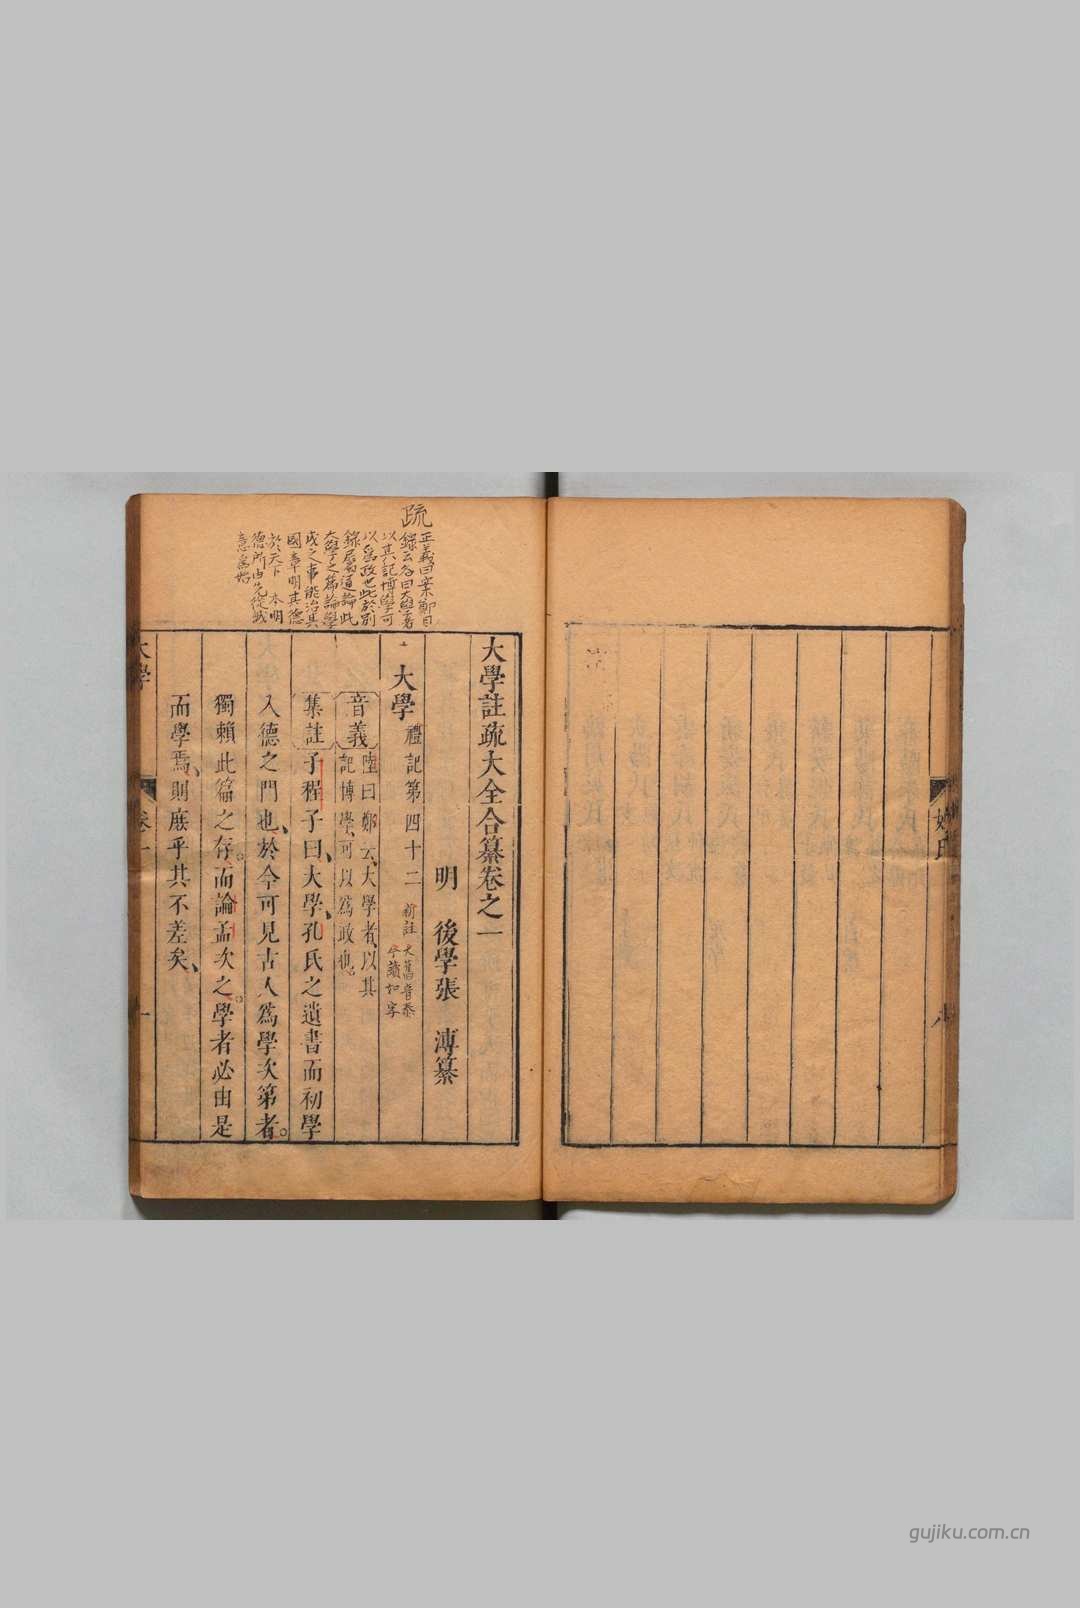 姓氏
八
疏
正義曰案鄭目
錄云名曰大學者
以其記博學可
以爲政也此於別
錄屬通論此
大學之篇論學
成之事能治其
國章明其德
於天下 本明
德所由先從誠
意爲始
大學註疏大全合纂卷之一
明 後學張 溥纂
大學 禮記第四十二 新註 大舊音泰
今讀如字
音義 陸曰鄭云大學者以其
記博學可以爲政也
集註 子程子曰大學孔氏之遺書而初學
入德之門也於今可見古人爲學次第者
獨賴此篇之存而論孟次之學者必由是
而學焉則庶乎其不差矣
大學
卷一
一
gujiku.com.cn